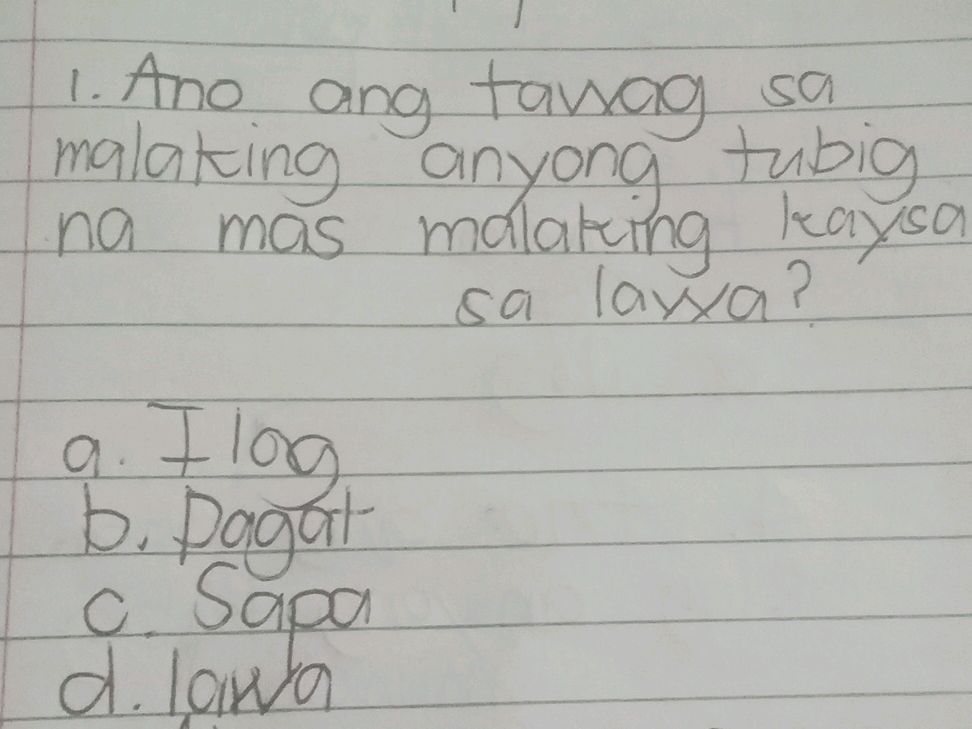 1. Ano ang tawag sa
malaking anyong tubig
na mas malaking kaysa
sa lawa?
a. Ilog
b. Dagat
c. Sapa
d. lawa